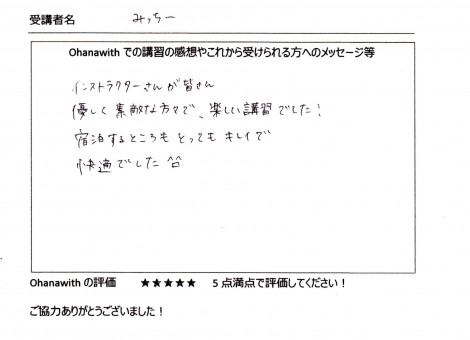 受講者名 みっちー
Ohanawith での講習の感想やこれから受けられる方へのメッセージ等
インストラクターさんが皆さん
優しく素敵な方々で、楽しい講習でした！
宿泊するところもとってもキレイで
快適でした ^^
Ohanawith の評価 ★★★★★ 5点満点で評価してください！
ご協力ありがとうございました！